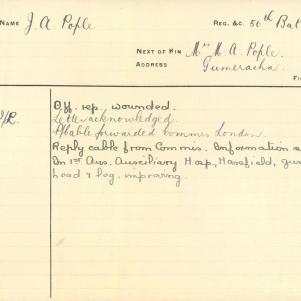 NAME J. A. Pople REG. &C. 50th Bat
NEXT OF KIN Mrs M. A. Pople.
ADDRESS Gumeracha.
Off. rep. wounded.
Letter acknowledged.
cable forwarded Commis London.
Reply cable from Commis. Information
In 1st Aus. Auxiliary Hosp., Harefield, gun
head & leg. improving.